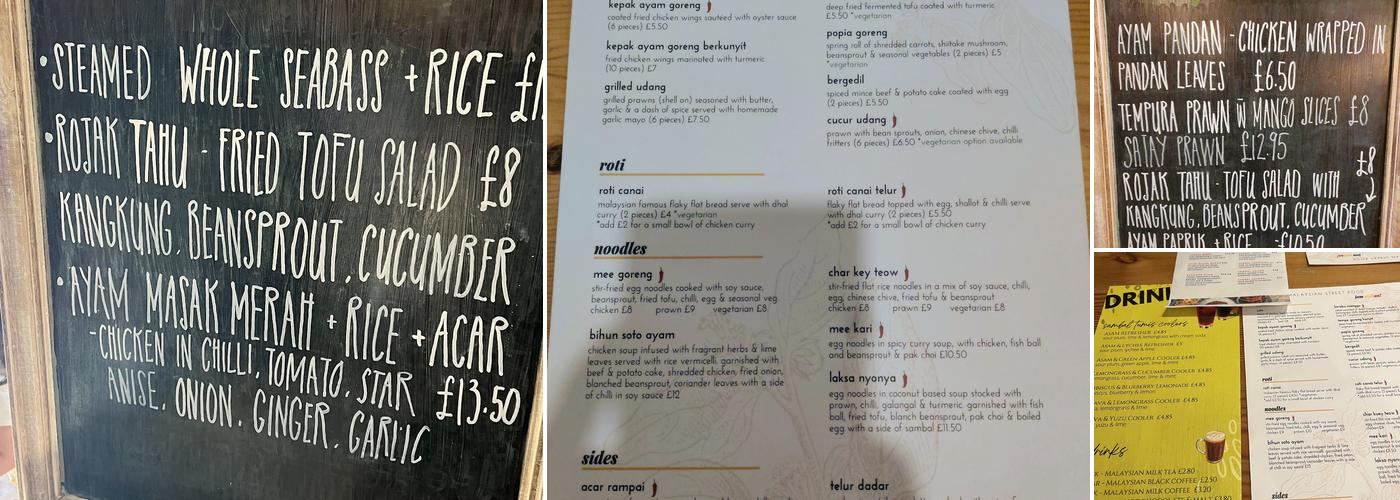 •STEAMED WHOLE SEABASS + RICE
•ROJAK TAHU - FRIED TOFU SALAD £8
KANGKUNG, BEANSPROUT, CUCUMBER
•AYAM MASAK MERAH + RICE + ACAR
-CHICKEN IN CHILLI, TOMATO, STAR £13.50
ANISE, ONION, GINGER, GARLIC
kepak ayam goreng
coated fried chicken wings sautéed with oyster sauce
(6 pieces) £5.50
kepak ayam goreng berkunyit
fried chicken wings marinated with turmeric
(10 pieces) £7
grilled udang
grilled prawns (shell on) seasoned with butter,
garlic & a dash of spice served with homemade
garlic mayo (6 pieces) £7.50
deep fried fermented tofu coated with turmeric
£5.50 *vegetarian
popia goreng
spring roll of shredded carrots, shiitake mushroom,
beansprout & seasonal vegetables (2 pieces) £5
*vegetarian
bergedil
spiced mince beef & potato cake coated with egg
(2 pieces) £5.50
cucur udang
prawn with bean sprouts, onion, chinese chive, chilli
fritters (6 pieces) £6.50 *vegetarian option available
roti
roti canai
malaysian famous flaky flat bread serve with dhal
curry (2 pieces) £4 *vegetarian
*add £2 for a small bowl of chicken curry
roti canai telur
flaky flat bread topped with egg, shallot & chilli serve
with dhal curry (2 pieces) £5.50
*add £2 for a small bowl of chicken curry
noodles
mee goreng
stir-fried egg noodles cooked with soy sauce,
beansprout, fried tofu, chilli, egg & seasonal veg
chicken £8 prawn £9 vegetarian £8
bihun soto ayam
chicken soup infused with fragrant herbs & lime
leaves served with rice vermicelli, garnished with
beef & potato cake, shredded chicken, fried onion,
blanched beansprout, coriander leaves with a side
of chilli in soy sauce £12
char key teow
stir-fried flat rice noodles in a mix of soy sauce, chilli,
egg, chinese chive, fried tofu & beansprout
chicken £8 prawn £9 vegetarian £8
mee kari
egg noodles in spicy curry soup, with chicken, fish ball
and beansprout & pak choi £10.50
laksa nyonya
egg noodles in coconut based soup stocked with
prawn, chilli, galangal & turmeric. garnished with fish
ball, fried tofu, blanch beansprout, pak choi & boiled
egg with a side of sambal £11.50
sides
acar rampai
telur dadar
AYAM PANDAN - CHICKEN WRAPPED IN
PANDAN LEAVES £6.50
TEMPURA PRAWN W MANGO SLICES £8
SATAY PRAWN £12.95
£8
ROJAK TAHU - TOFU SALAD WITH
KANGKUNG, BEANSPROUT, CUCUMBER
AYAM PAPRIK + RICE - £10.50
MALAYSIAN STREET FOOD
sambal tumis coolers
ASAM REFRESHER £4.85
ASAM & LYCHEE REFRESHER £5
ASAM & GREEN APPLE COOLER £4.85
LEMONGRASS & CUCUMBER COOLER £4.85
& BLUEBERRY LEMONADE £4.85
& LEMONGRASS COOLER £4.85
& YUZU COOLER £4.85
- MALAYSIAN MILK TEA £2.80
- MALAYSIAN BLACK COFFEE £2.50
- MALAYSIAN MILK COFFEE £3.20
roti
noodles
mee goreng
bihun soto ayam
sides